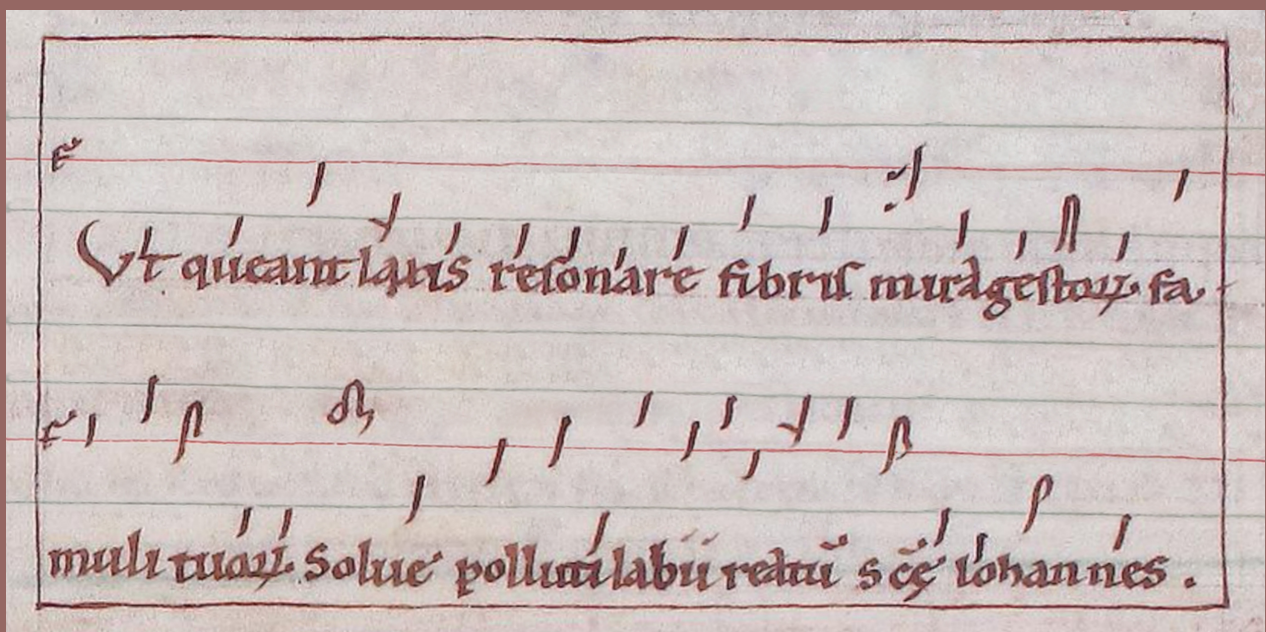 F
Vt queant laxis resonare fibris mira gestoꝝ fa
F
muli tuoꝝ. Solue polluti labii reatū sc̄ę iohannes.